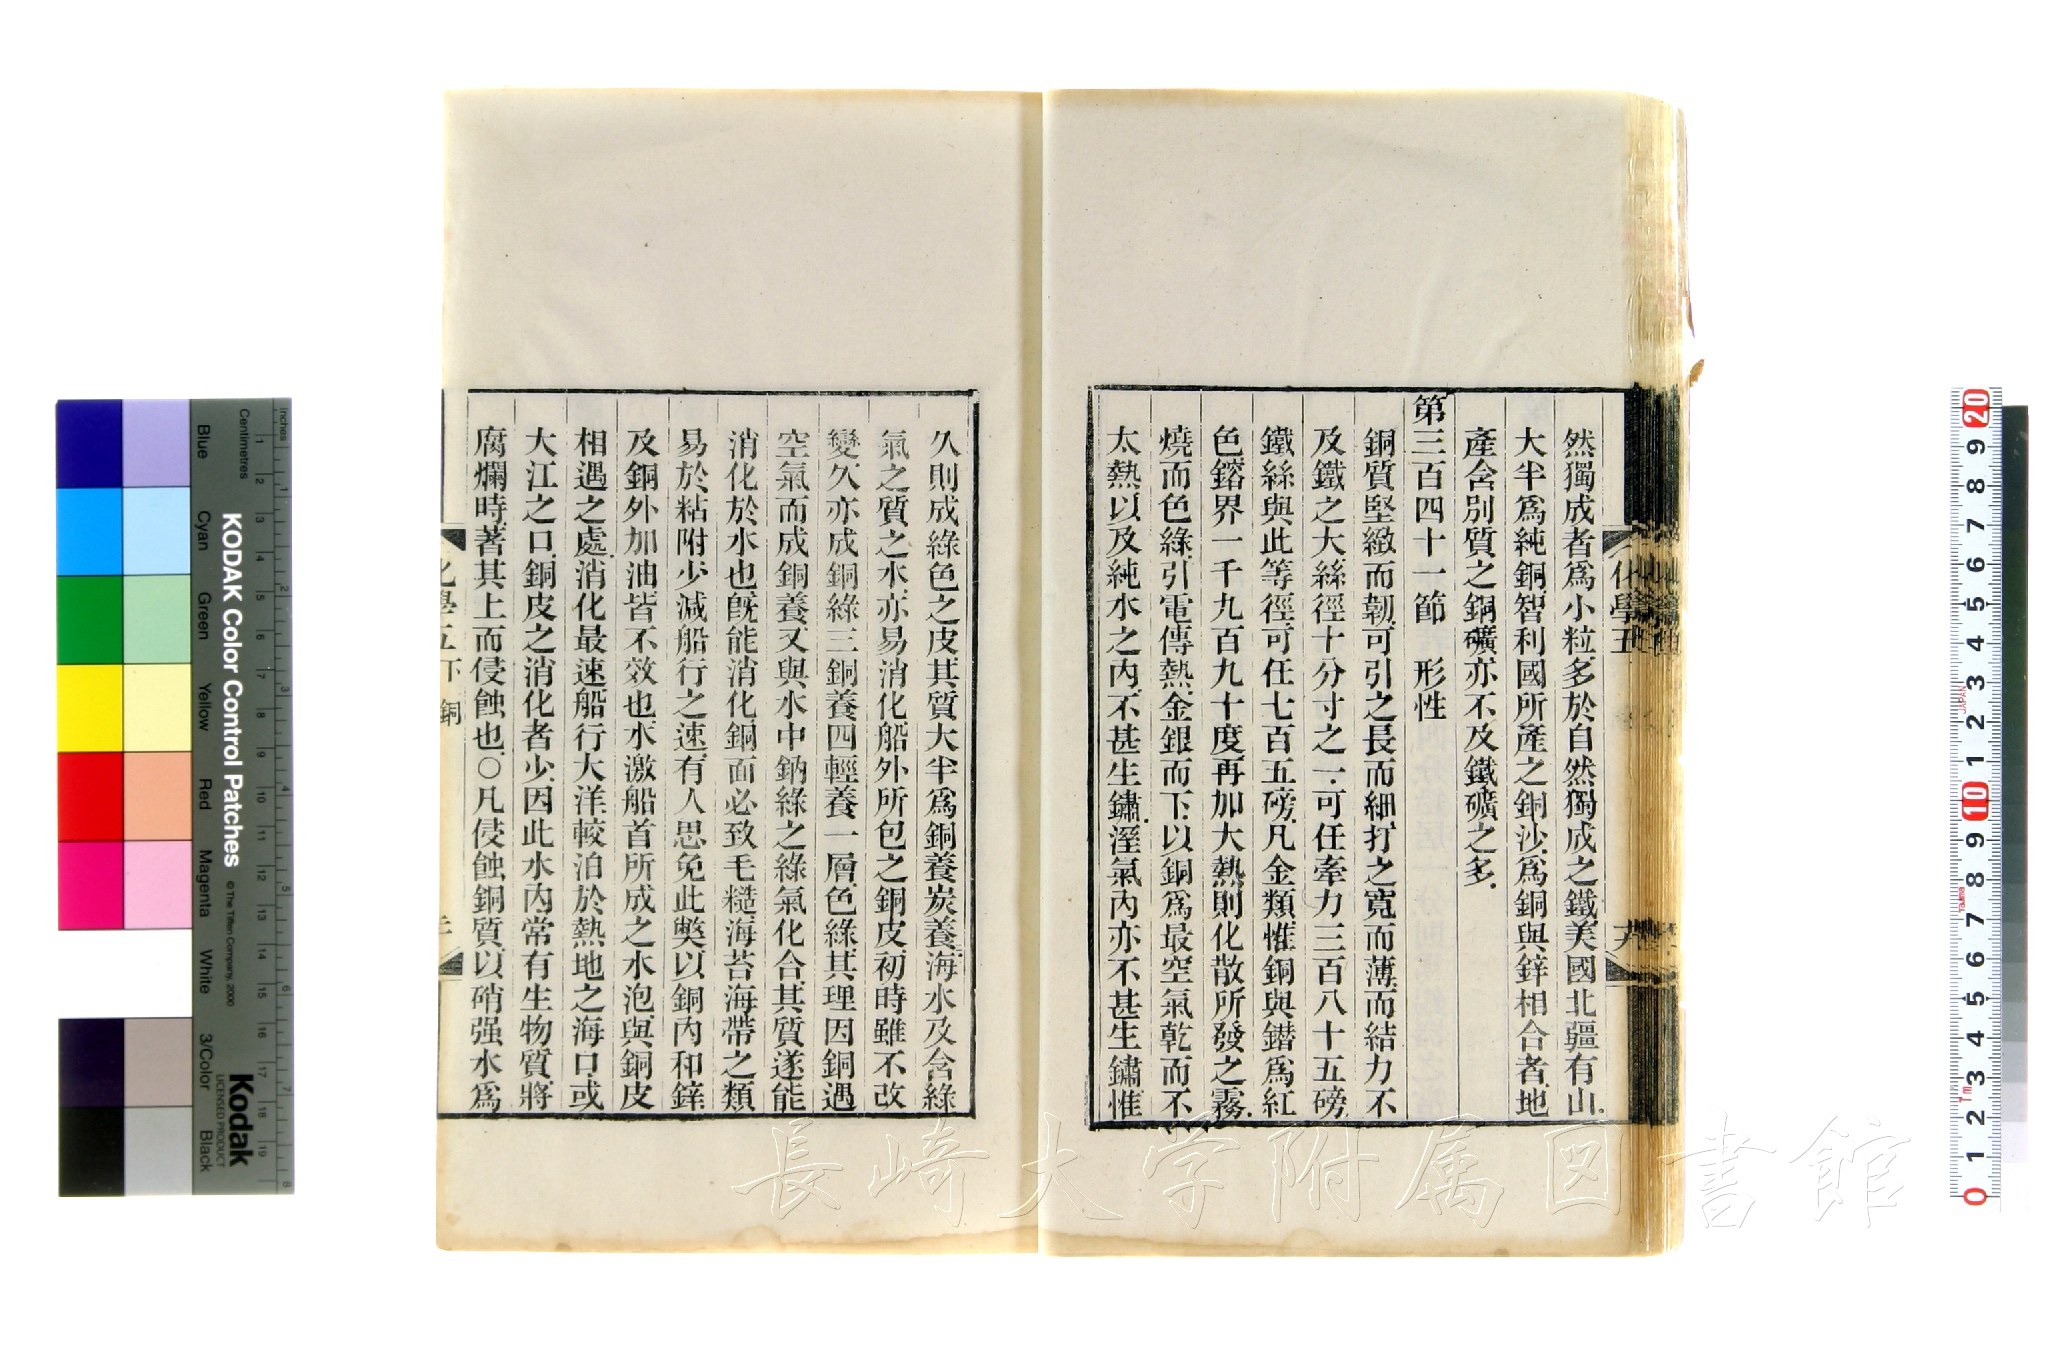 然獨成者爲小粒多於自然獨成之鐵美國北疆有山
大半爲純銅智利國所產之銅沙爲銅與鋅相合者地
產含別質之銅礦亦不及鐵礦之多
第三百四十一節　形性
銅質堅緻而韌可引之長而細打之寬而薄而結力不
及鐵之大絲徑十分寸之一可任牽力三百八十五磅
鐵絲與此等徑可任七百五磅凡金類惟銅與鐕爲紅
色鎔界一千九百九十度再加大熱則化散所發之霧
燒而色綠引電傳熱金銀而下以銅爲最空氣乾而不
太熱以及純水之內不甚生鏽溼氣內亦不甚生鏽惟
久則成綠色之皮其質大半爲銅養炭養海水及含綠
氣之質之水亦易消化船外所包之銅皮初時雖不改
變久亦成銅綠三銅養四輕養一層色綠其理因銅遇
空氣而成銅養又與水中鈉綠之綠氣化合其質遂能
消化於水也旣能消化銅面必致毛糙海苔海帶之類
易於粘附少減船行之速有人思免此獘以銅內和鋅
及銅外加油皆不效也水激船首所成之水泡與銅皮
相遇之處消化最速船行大洋較泊於熱地之海口或
大江之口銅皮之消化者少因此水內常有生物質將
腐爛時著其上而侵蝕也○凡侵蝕銅質以硝强水爲
化學五
化學五下 銅
KODAK Color Control Patches
© The Tiffen Company, 2000
Kodak
LICENSED PRODUCT
Centimetres
inches
Blue
Cyan
Green
Yellow
Red
Magenta
White
3/Color
Black
長崎大学附属図書館